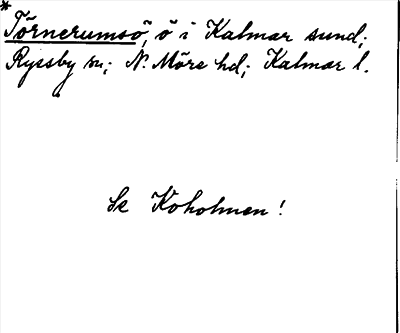 *
Törnerumsö, ö i Kalmar sund;
Ryssby sn; N. Möre hd; Kalmar l.
Se Koholmen!